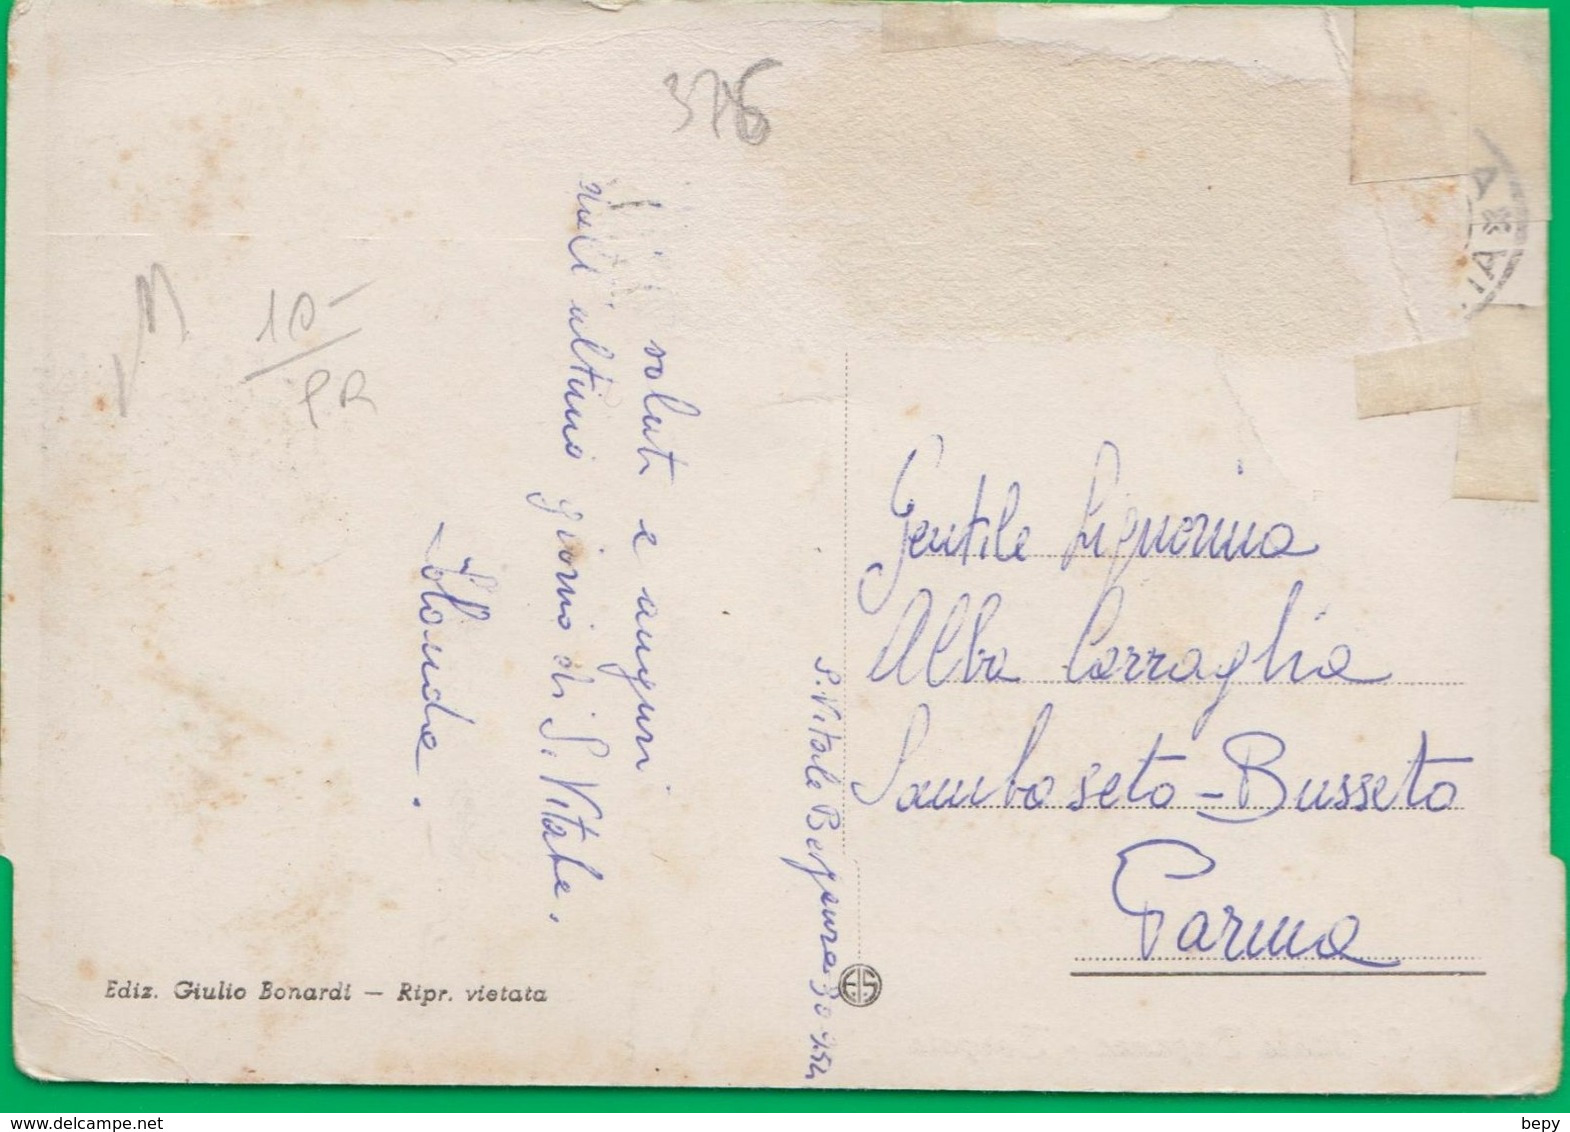 376
saluti e auguri
nell'ultimo giorno di S. Vitale.
Iolanda.
10-
PR
S. Vitale Baganza 30-9-54
Gentile Signorina
Alba Carraglia
Samboseto - Busseto
Parma
Ediz. Giulio Bonardi — Ripr. vietata
www.delcampe.net
bepy